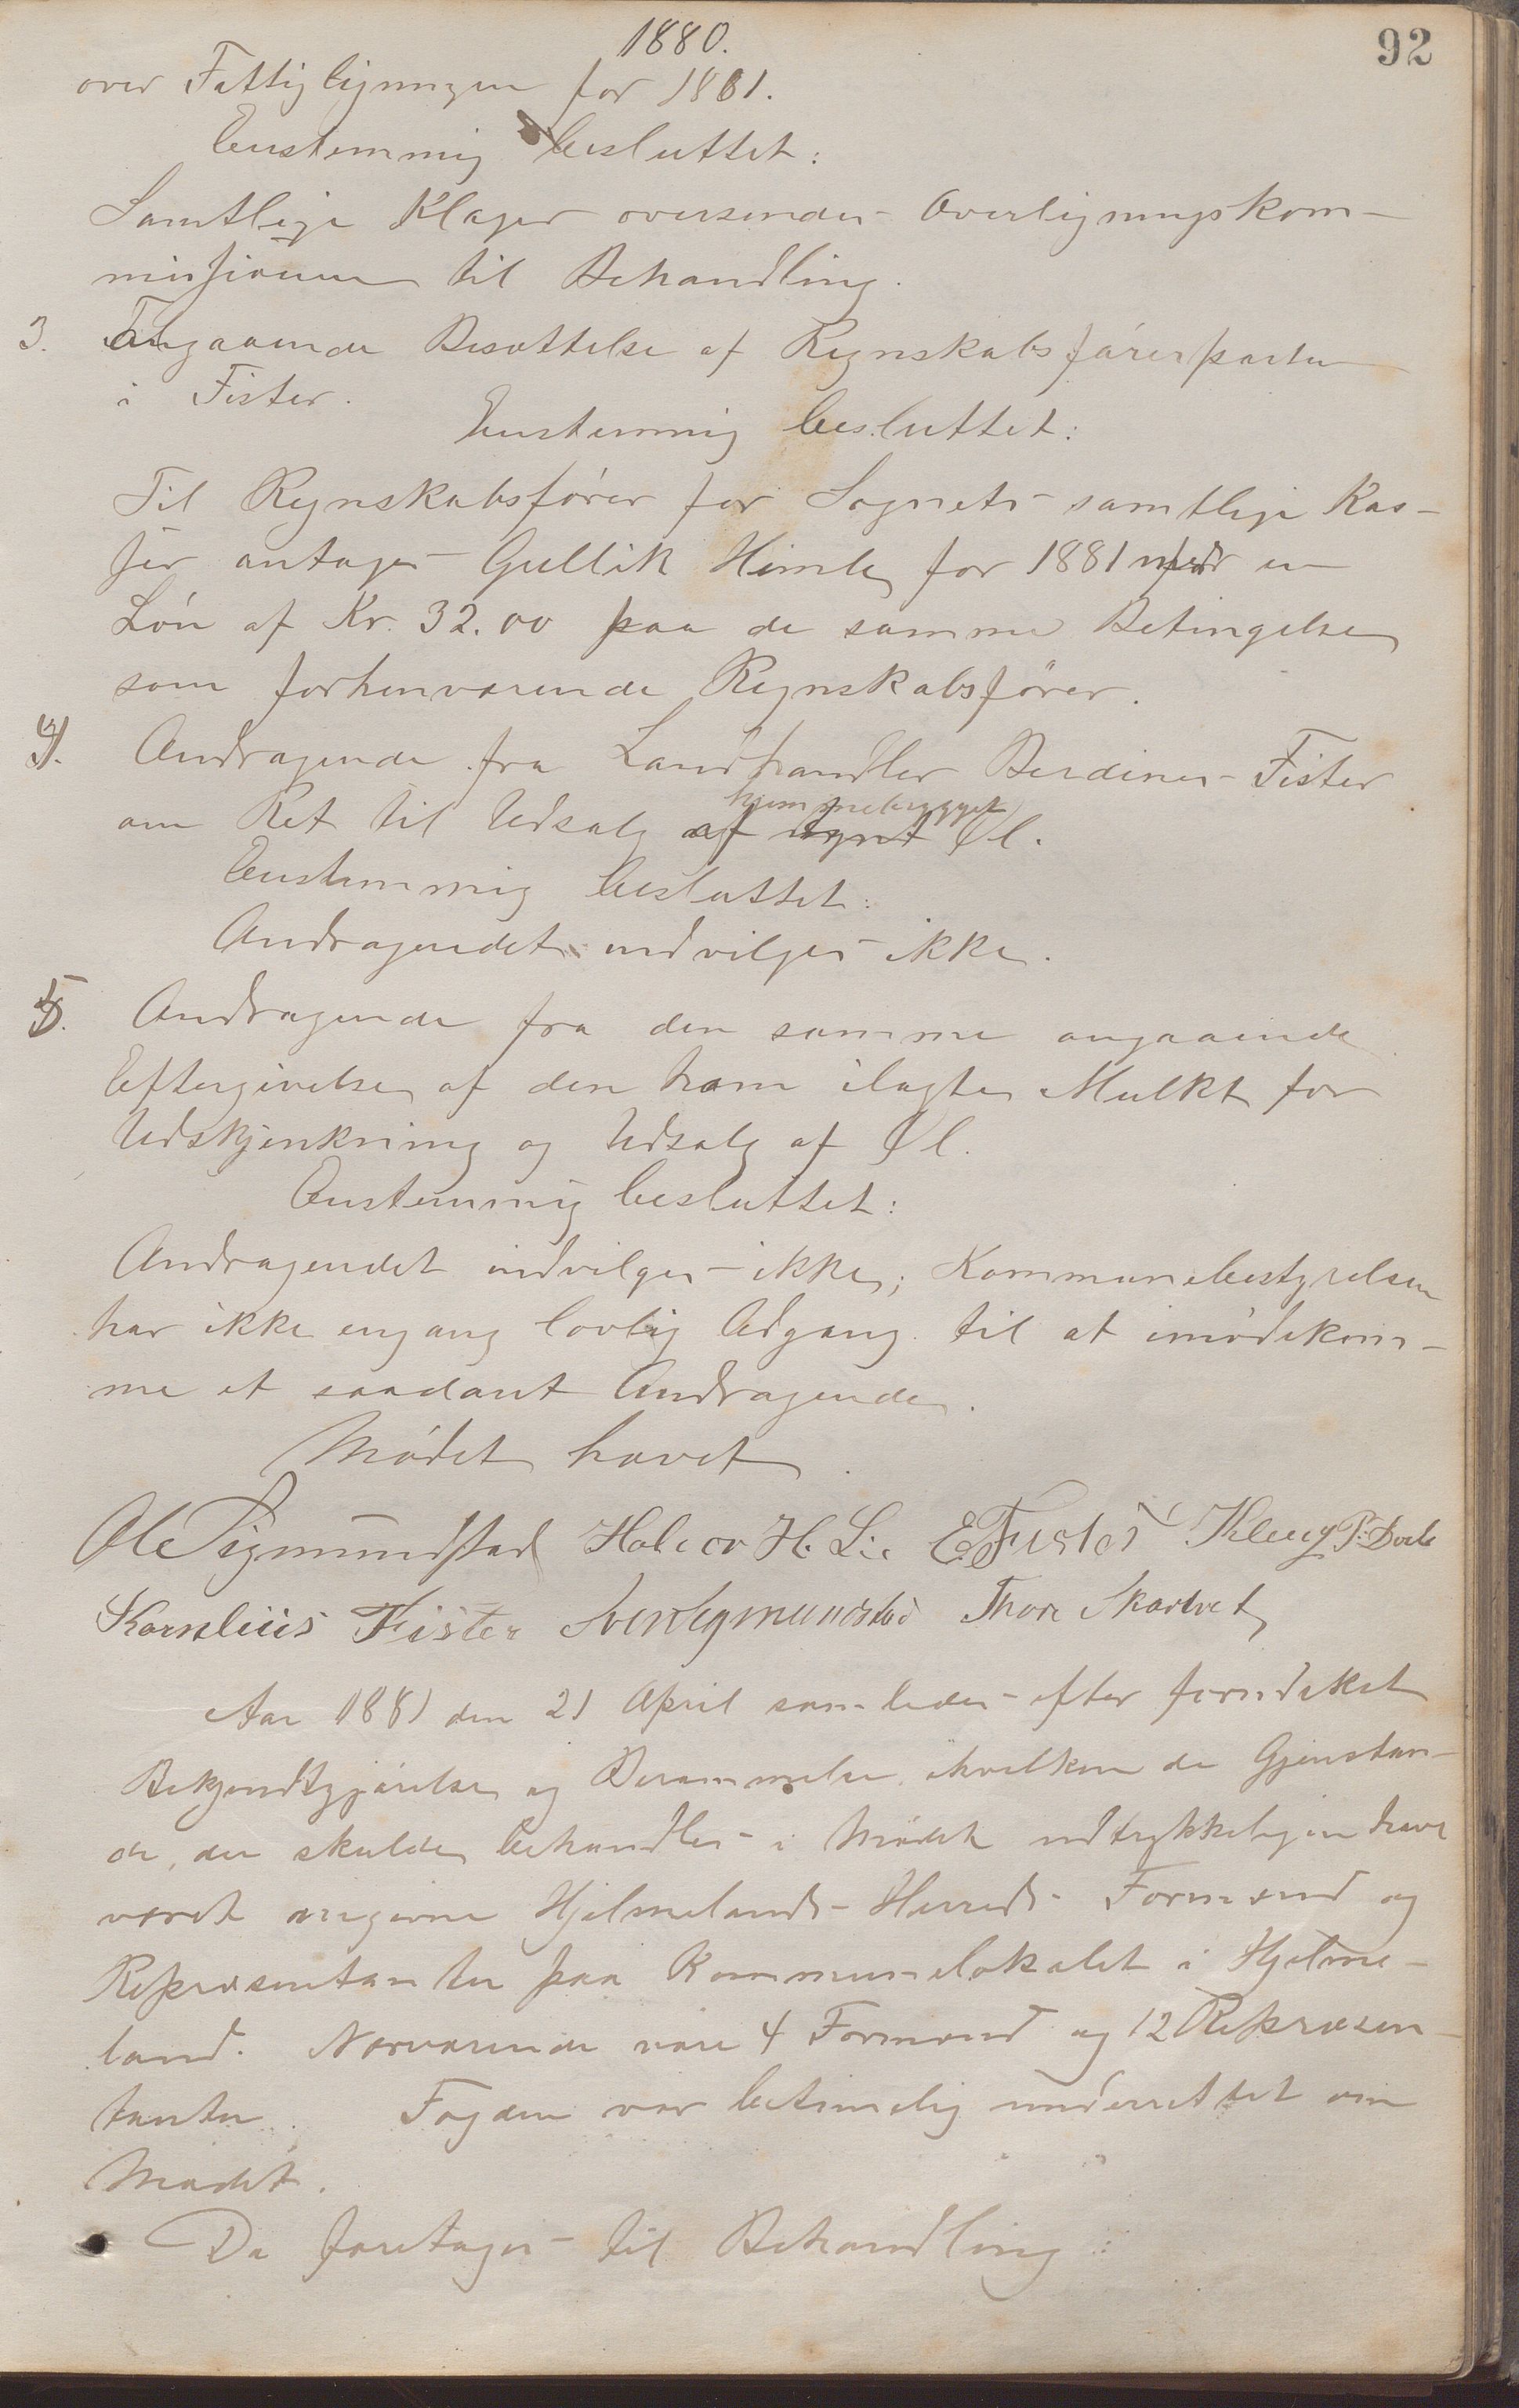 1880.
92
over Fattigligningen for 1881.
Enstemmig besluttet:
Samtlige Klager oversendes Overligningskom-
missionen til Behandling.
3. Angaaende Besættelse af Regnskabsførerposten
i Fister.
Enstemmig besluttet:
Til Regnskabsfører for Sognets samtlige Kas-
ser antages Gullik Himle for 1881 med en
Løn af Kr. 32.00 paa de samme Betingelser
som forhenværende Regnskabsfører.
4). Andragende fra Landhandler Berdines Fister
hjemmebrygget
om Ret til Udsalg af Øl.
Enstemmig besluttet:
Andragendet indvilges ikke.
5. Andragende fra den samme angaaende
Eftergivelse af den ham ilagte Mulkt for
Udskjenkning og Udsalg af Øl.
Enstemmig besluttet:
Andragendet indvilges ikke; Kommunebestyrelsen
har ikke engang lovlig Adgang til at imødekom-
me et saadant Andragende.
Mødet hævet.
Ole Sigmundstad Halvor H. Lie E. Fister Kleng P.
Kornelius Fister Sven Sigmundstad Thore Skartvet
Aar 1881 den 21 April samledes efter forudsket
Bekjendtgjørelse og Berammelse, ihvilken de Gjenstan-
de, der skulde behandles i Mødet udtrykkeligen have
været angivne Hjelmelands Herreds Formænd og
Repræsentanter paa Kommunelokalet i Hjelme-
land. Nærværende vare 4 Formænd og 12 Repræsen-
tanter. Fogden var betimelig underrettet om
Mødet.
Da foretages til Behandling: